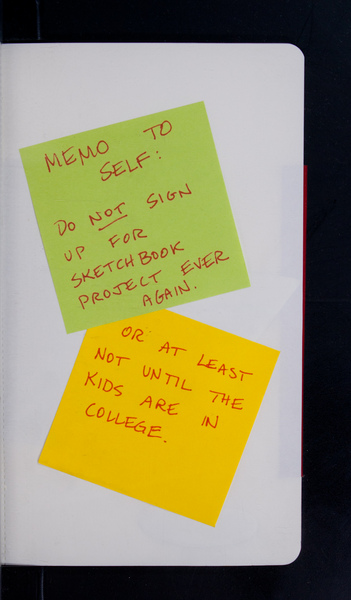 MEMO TO
SELF:
DO NOT SIGN
UP FOR
SKETCHBOOK
PROJECT EVER
AGAIN.
OR AT LEAST
NOT UNTIL THE
KIDS ARE IN
COLLEGE.